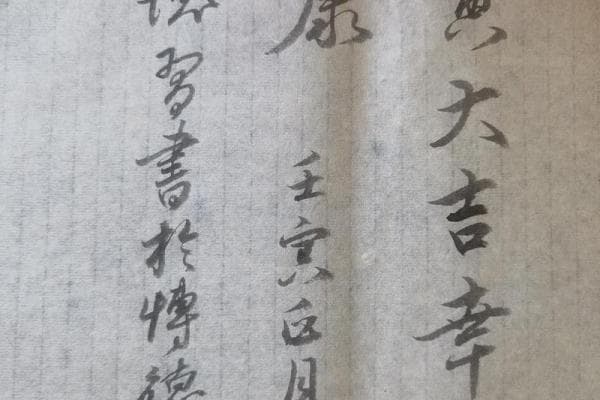 寅大吉幸
康 壬寅正月
習書於博德